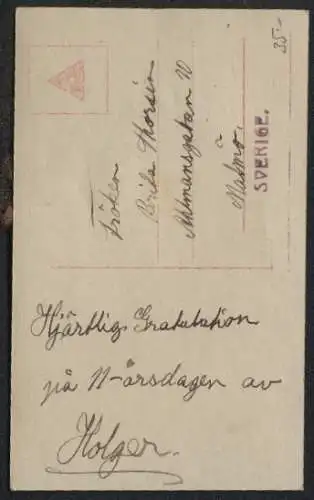 35:-
Fröken
Berita Thorsén
Ahlmansgatan 10
Malmö.
SVERIGE.
Hjärtlig Gratulation
på 11-årsdagen av
Holger.